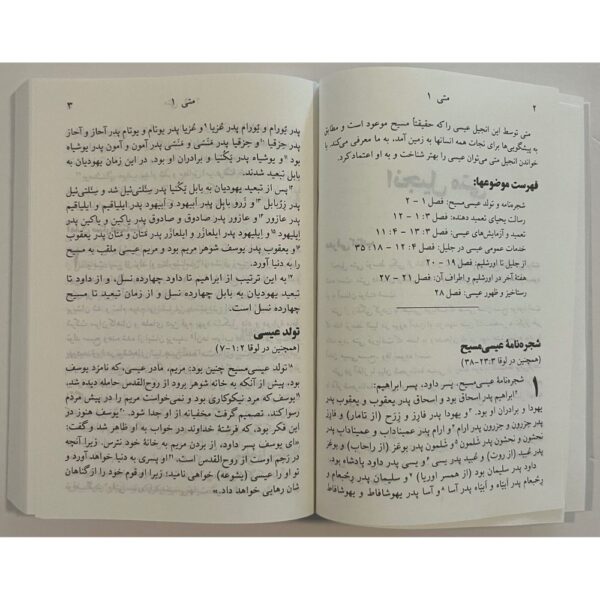 متی ۱
۲
متی توسط این انجیل عیسی را که حقیقتاً مسیح موعود است و مطابق
پیشگویی‌ها برای نجات همه انسانها به زمین آمد، به ما معرفی می‌کند. با
خواندن انجیل متی می‌توان عیسی را بهتر شناخت و به او اعتماد کرد.
فهرست موضوعها:
شجره‌نامه و تولد عیسی مسیح: فصل ۱ - ۲
رسالت یحیای تعمید دهنده: ۱:۳ - ۱۲
تعمید و آزمایش‌های عیسی: ۱۳:۳ - ۱۱:۴
خدمات عمومی عیسی در جلیل: ۱۲:۴ - ۳۵:۱۸
از جلیل تا اورشلیم: فصل ۱۹ - ۲۰
هفتهٔ آخر در اورشلیم و اطراف آن: فصل ۲۱ - ۲۷
رستاخیز و ظهور عیسی: فصل ۲۸
شجره‌نامهٔ عیسی مسیح
(همچنین در لوقا ۲۳:۳-۳۸)
۱ شجره‌نامهٔ عیسی مسیح، پسر داود، پسر ابراهیم:
ابراهیم پدر اسحاق بود و اسحاق پدر یعقوب و یعقوب پدر
یهودا و برادران او بود. و یهودا پدر فارِز و زِرَح (از تامار) و فارِز
پدر حزرون و حزرون پدر ارام و ارام پدر عمیناداب و عمیناداب پدر
نحشون و نحشون پدر شلمون و شلمون پدر بوعَز (از راحاب) و بوعَز
پدر عُبید (از روت) و عُبید پدر یسی و یسی پدر داود پادشاه بود.
داود پدر سلیمان بود (از همسر اوریا) و سلیمان پدر رِحُبعام و
رِحُبعام پدر اَبیّاه و اَبیّاه پدر آسا و آسا پدر یهوشافاط و یهوشافاط
متی ۱
۳
پدر یُورام و یُورام پدر عُزیا و عُزیا پدر یوتام و یوتام پدر آحاز و آحاز
پدر حِزقیا و حِزقیا پدر مَنَسّی و مَنَسّی پدر آمون و آمون پدر یوشیاه
بود و یوشیاه پدر یَکُنیا و برادران او بود. در این زمان یهودیان به
بابل تبعید شدند.
۱۲پس از تبعید یهودیان به بابل یَکُنیا پدر سِئلتی‌ئیل شد و سِئلتی‌ئیل
پدر زَرُبابل و زَروبابِل پدر اَبیهود و اَبیهود پدر ایلیاقیم و ایلیاقیم
پدر عازور و عازور پدر صادوق و صادوق پدر یاکین و یاکین پدر
ایلیهود و ایلیهود پدر ایلعازَر و ایلعازَر پدر مَتان و مَتان پدر یعقوب
و یعقوب پدر یوسف شوهر مریم بود و مریم عیسی ملقب به مسیح
را به دنیا آورد.
۱۷به این ترتیب از ابراهیم تا داود چهارده نسل، و از داود تا
تبعید یهودیان به بابل چهارده نسل و از زمان تبعید تا مسیح
چهارده نسل است.
تولد عیسی
(همچنین در لوقا ۱:۲-۷)
۱۸تولد عیسی مسیح چنین بود: مریم، مادر عیسی، که نامزد یوسف
بود، پیش از آنکه به خانه شوهر برود از روح‌القدس حامله دیده شد.
۱۹یوسف که مرد نیکوکاری بود و نمی‌خواست مریم را در پیش مردم
رسوا کند، تصمیم گرفت مخفیانه از او جدا شود. ۲۰یوسف هنوز در
این فکر بود، که فرشتهٔ خداوند در خواب به او ظاهر شد و گفت:
«ای یوسف پسر داود، از بردن مریم به خانهٔ خود نترس. زیرا آنچه
در رَحِم اوست از روح‌القدس است. ۲۱او پسری به دنیا خواهد آورد و
تو او را عیسی (یشوعه) خواهی نامید؛ زیرا او قوم خود را از گناهان
شان رهایی خواهد داد.»